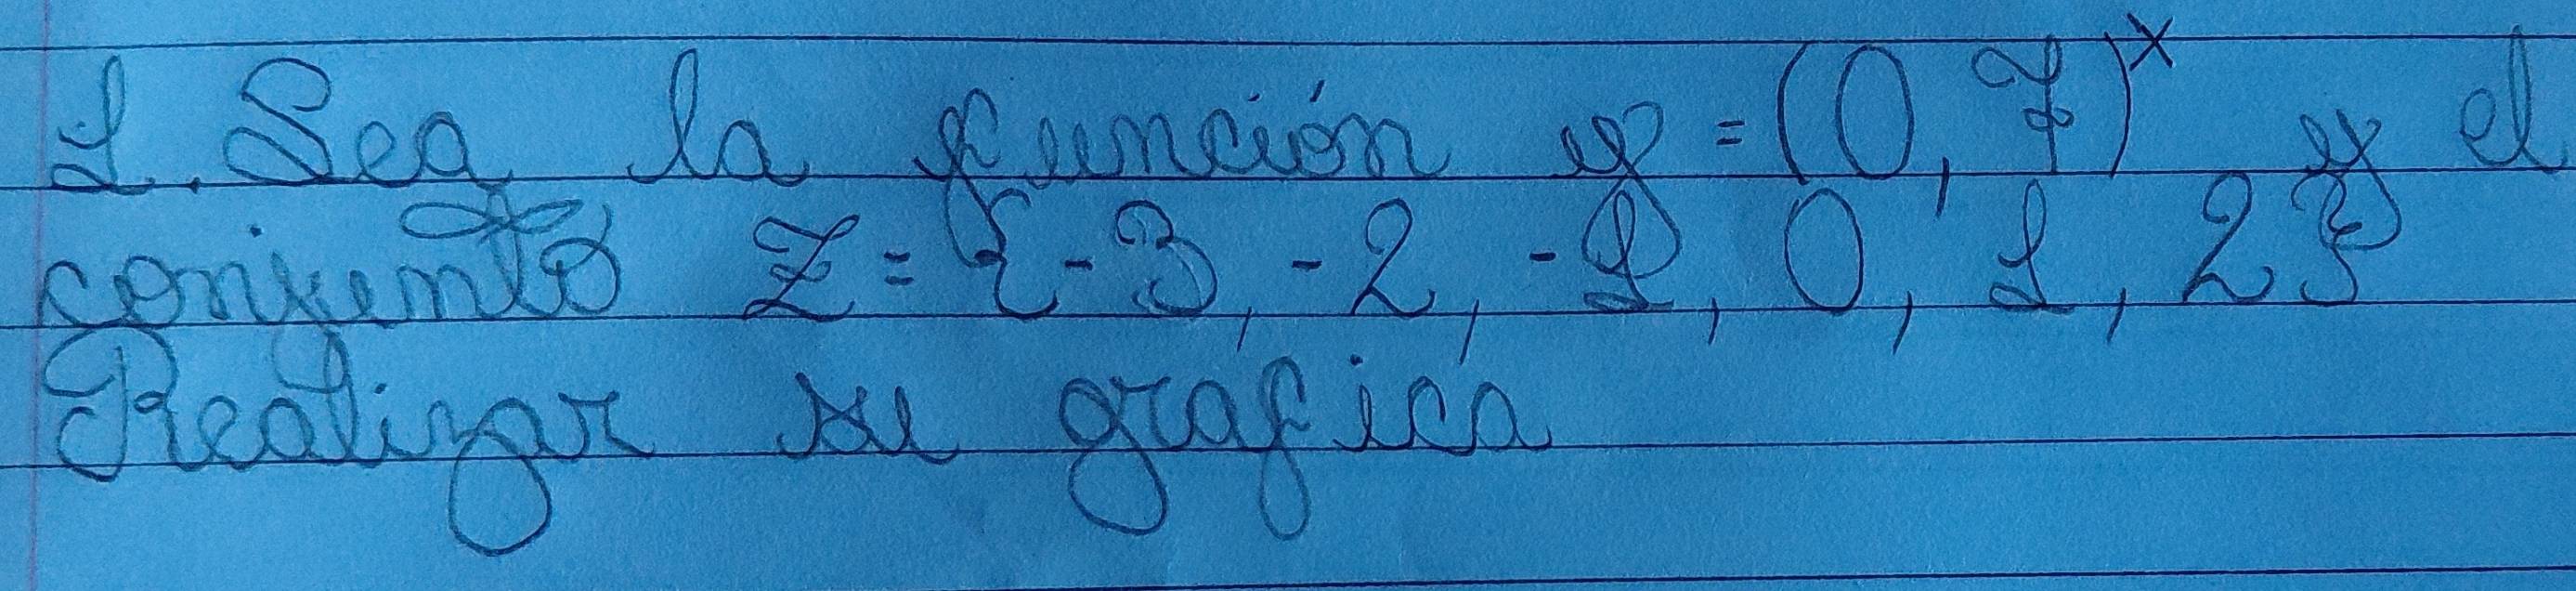 1. Sea la función y = (0,7)^x y el
conjunto Z = {-3, -2, -1, 0, 1, 2}
Realizar su grafica